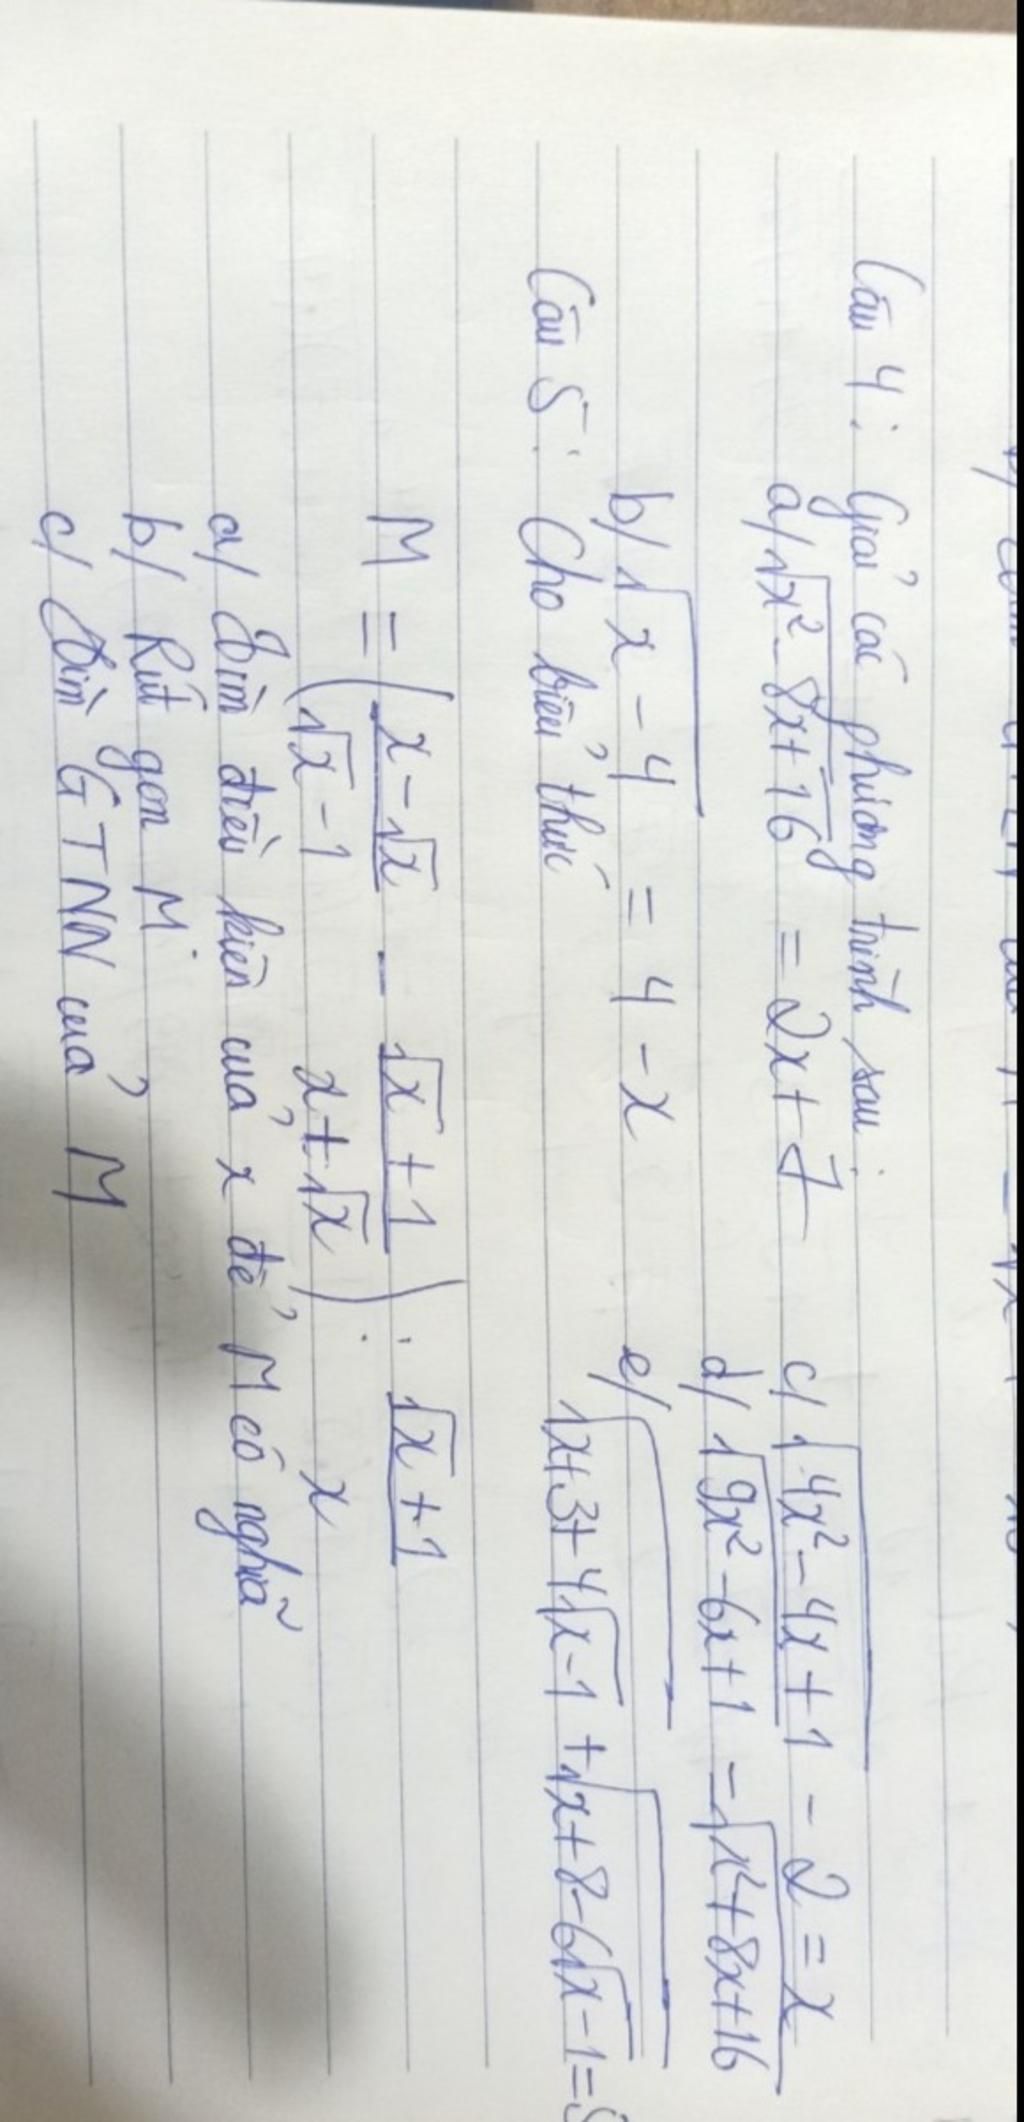 Câu 4: Giải các phương trình sau
a/ √x² - 8x + 16 = 2x + 7
c/ √4x² - 4x + 1 - 2 = x
b/ √x - 4 = 4 - x
d/ √9x² - 6x + 1 = √x² + 8x + 16
e/ √x + 3 + 4√x - 1 + √x + 8 - 6√x - 1 =
Câu 5: Cho biểu thức
M = (x - √x / √x - 1 - √x + 1 / x + √x) : √x + 1 / x
a/ Tìm điều kiện của x để M có nghĩa
b/ Rút gọn M
c/ Tìm GTNN của M